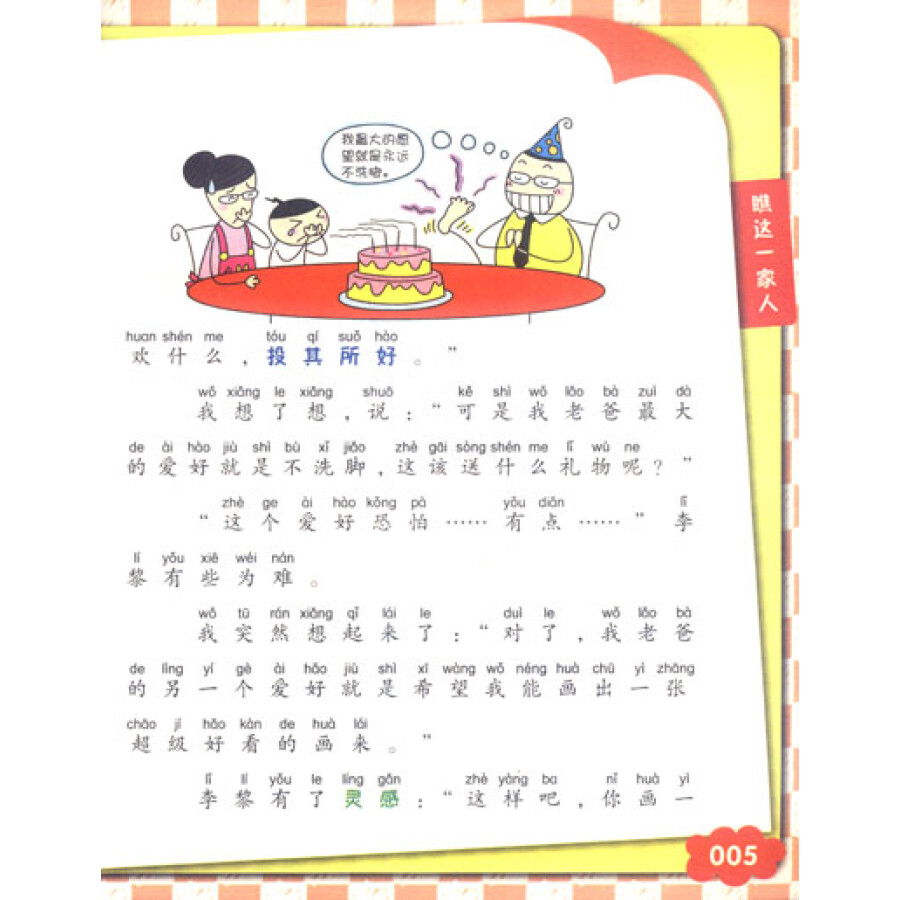 我最大的愿
望就是永远
不洗脚。
瞧这一家人
huan shén me tóu qí suǒ hào
欢什么，投其所好。”
wǒ xiǎng le xiǎng shuō kě shì wǒ lǎo bà zuì dà
我想了想，说：“可是我老爸最大
de ài hào jiù shì bù xǐ jiǎo zhè gāi sòng shén me lǐ wù ne
的爱好就是不洗脚，这该送什么礼物呢？”
zhè ge ài hào kǒng pà yǒu diǎn lǐ
“这个爱好恐怕……有点……”李
lí yǒu xiē wéi nán
黎有些为难。
wǒ tū rán xiǎng qǐ lái le duì le wǒ lǎo bà
我突然想起来了：“对了，我老爸
de lìng yí gè ài hào jiù shì xī wàng wǒ néng huà chū yì zhāng
的另一个爱好就是希望我能画出一张
chāo jí hǎo kàn de huà lái
超级好看的画来。”
lǐ lí yǒu le líng gǎn zhè yàng ba nǐ huà yì
李黎有了灵感：“这样吧，你画一
005